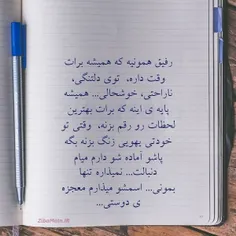 رفیق همونیه که همیشه برات
وقت داره، توی دلتنگی،
ناراحتی، خوشحالی... همیشه
پایه ی اینه که برات بهترین
لحظات رو رقم بزنه، وقتی تو
خودتی یهویی زنگ بزنه بگه
پاشو آماده شو دارم میام
دنبالت... نمیذاره تنها
بمونی... اسمشو میذارم معجزه
ی دوستی...